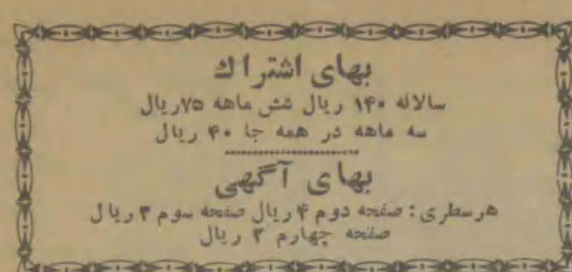 بهای اشتراك
سالانه ۱۴۰ ریال شش ماهه ۷۵ ریال
سه ماهه در همه جا ۴۰ ریال
بهای آگهی
هرسطری: صفحه دوم ۴ ریال صفحه سوم ۳ ریال
صفحه چهارم ۲ ریال